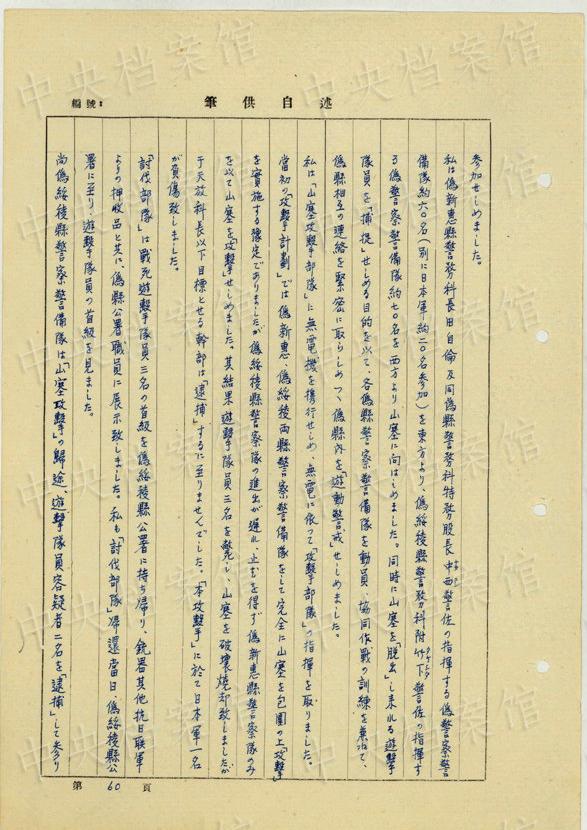 編號：
筆供自述
参加せしめました。
私は偽新惠縣警務科長田自倫及同偽縣警務科特務股長中西警佐の指揮する偽警察警
備隊約六〇名（別に日本軍約二〇名参加）を東方より、偽綏稜縣警務科附竹下警佐の指揮す
る偽警察警備隊約七〇名を西方より山塞に向はしめました。同時に山塞を「脱出」し来れる遊撃
隊員を「捕捉」せしめる目的を以て、各偽縣警察警備隊を動員、協同作戰の訓練を兼ねて、
偽縣相互の連絡を緊密に取らしめつゝ偽縣内を「遊動警戒」せしめました。
私は「山塞攻撃部隊」に無電機を携行せしめ、無電に依って「攻撃部隊」の指揮を取りました。
當初の「攻撃計劃」では偽新惠、偽綏稜両縣警察警備隊をして完全に山塞を包圍の上攻撃
を實施する豫定でありましたが偽綏稜縣警察隊の進出が遅れ、止むを得ず偽新惠縣警察隊のみ
を以て山塞を攻撃せしめました。其結果遊撃隊員三名を斃し、山塞を破壊焼却致しましたが
于天放科長以下目標とせる幹部は「逮捕」するに至りませんでした。「本攻撃」に於て日本軍一名
が負傷致しました。
「討伐部隊」は戰死遊撃隊員三名の首級を偽綏稜縣公署に持ち帰り、銃器其他抗日联軍
よりの押收品と共に、偽縣公署職員に展示致しました。私も「討伐部隊」帰還當日、偽綏稜縣公
署に至り、遊撃隊員の首級を見ました。
尚偽綏稜縣警察警備隊は「山塞攻撃」の歸途、遊撃隊員容疑者二名を「逮捕」して参り
第 60 頁
中央档案馆